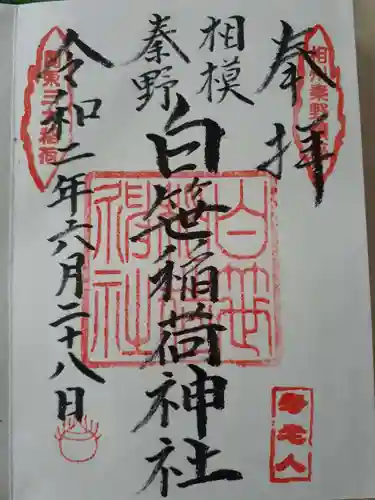 奉拝
相模
秦野
白笹稲荷神社
令和二年六月二十八日
関東三大稲荷
白笹稲荷神社
寿老人